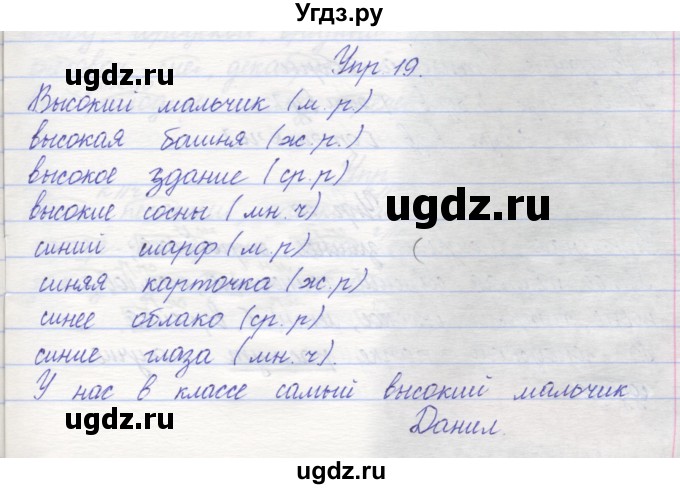 Угдз.ру
Упр 19.
ugdz.ru ugdz.ru
Высокий мальчик (м.р)
высокая башня (ж.р.)
высокое здание (ср.р)
высокие сосны (мн.ч)
ugdz.ru
синий шарф (м.р)
синяя карточка (ж.р)
синее облако (ср.р)
ugdz.ru ugdz.ru
синие глаза (мн.ч).
У нас в классе самый высокий мальчик
Данил.
ugdz.ru ugdz.ru
ugdz.ru